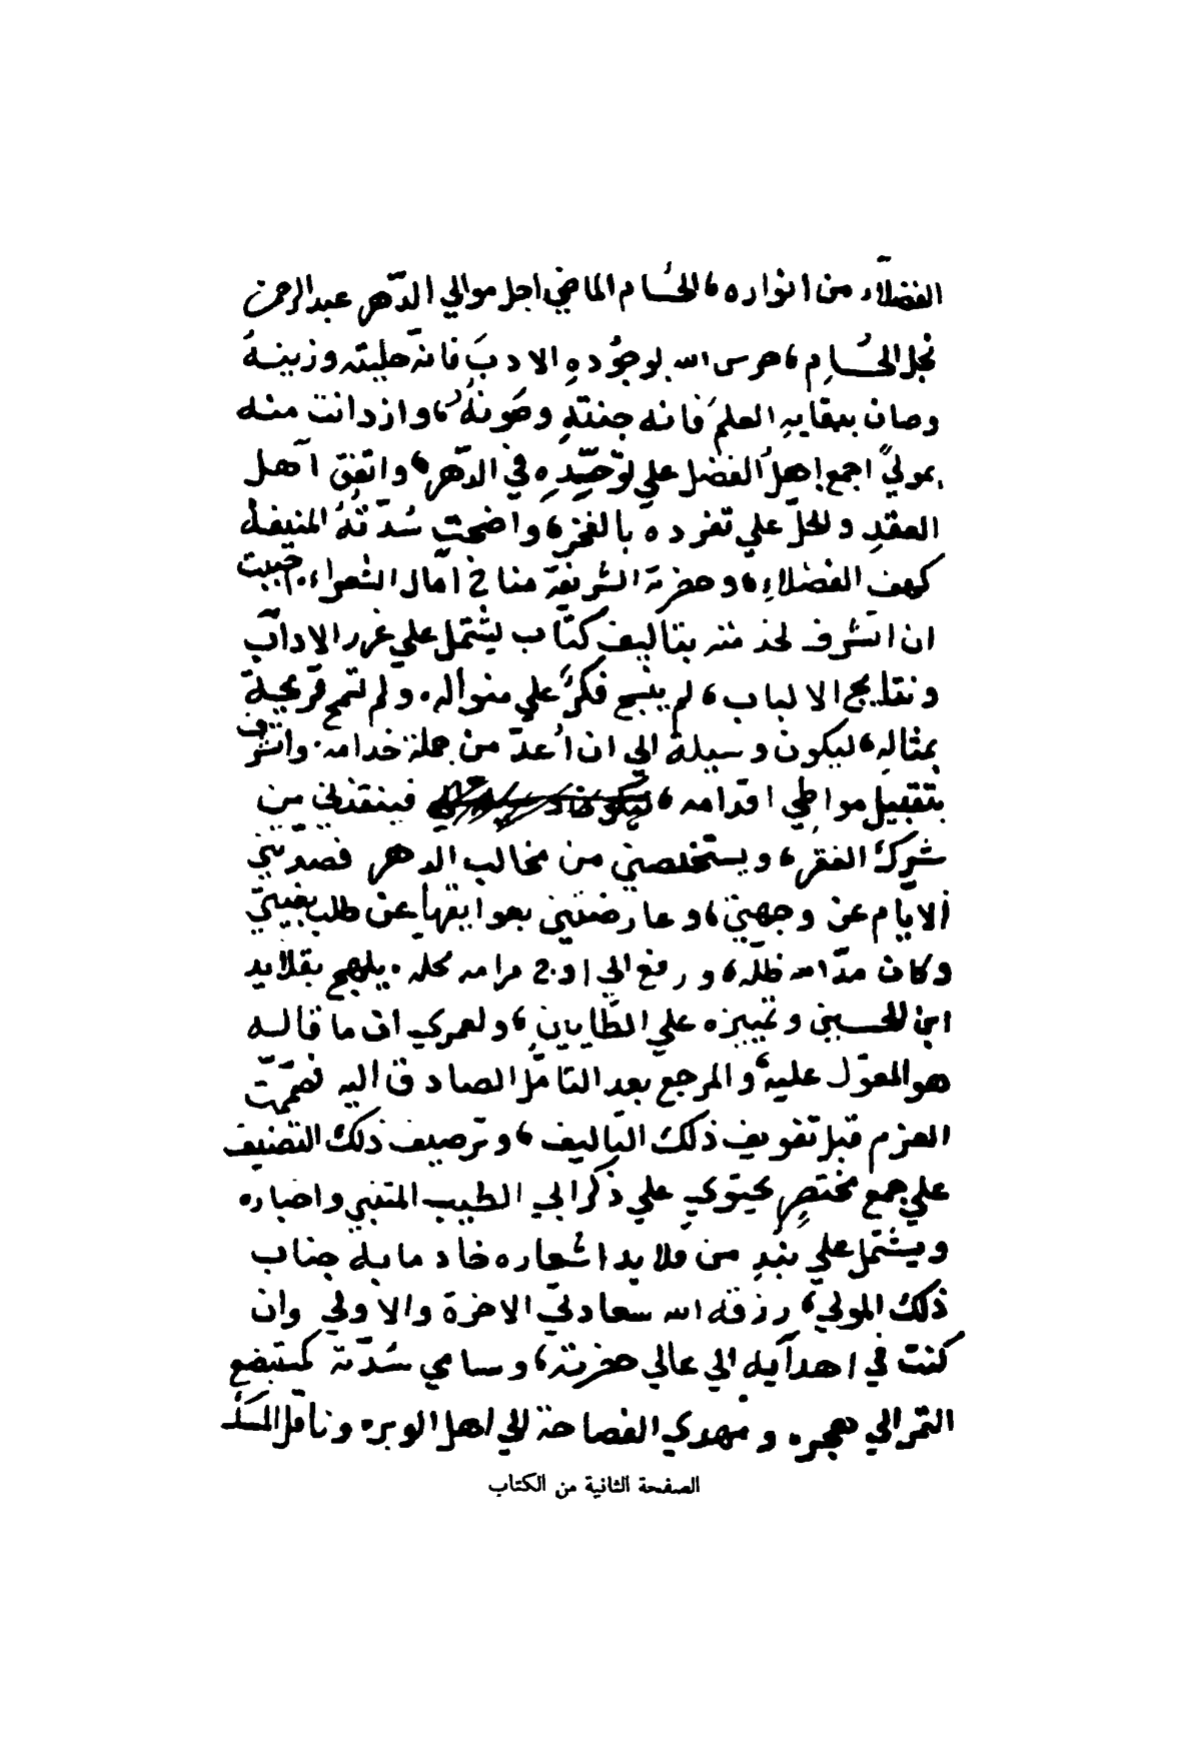 الفضلاء من انواره، الحُسام الماضي اجل موالي الدّهر عبد الرحمن
نجل الحُسامِ، حرس الله بوجُودهِ الادبَ فانه حليته وزينهُ
وصان ببقايهِ العلمَ فانه جنتهِ وصَونهُ، وازدانت منه
بموليً اجمع اهلُ الفضل علي توحّيدِهِ في الدّهر، واتفق آهل
العقدِ والحلّ علي تفرده بالفخر، واضحت سُدّتهُ المنيفة
كهف الفضلاءِ، وحضرته الشريفة مناخ آمال الشعراء. حببت
ان اتشرف لخدمته بتاليف كتاب ليشتمل علي غرر الاداب
ونتايج الالباب، لم ينسج فكرٌ علي منواله. ولم تسمح قريحة
بمثالهِ، ليكون وسيلة الي ان اُعدّ من جملة خدامه. واتشرف
بتقبيل مواطي اقدامه، فينقذني من
شركَ الفقر، ويستخلصني من مخالب الدهر فصدّتني
الايام عن وجهتي، وعارضتني بعوايقها عن طلب بغيتي
وكان مدّ الله ظلّه، ورفع الي اوج مرامه محله. يلهج بقلايد
ابن الحسين وتمييزه علي الطّايين، ولعمري ان ما قاله
هو المعوّل عليه، والمرجع بعد التامّل الصادق اليه فصمّمت
العزم قبل تفويف ذلك التاليف، وترصيف ذلك التصنيف
علي جمع مختصرٍ يحتوي علي ذكر ابي الطيب المتنبي واخباره
ويشتمل علي نبذٍ من قلايد اشعاره خادما به جناب
ذلك المولي، رزقه الله سعادتي الاخرة والاولي وان
كنت في اهدآيه الي عالي حضرته، وسامي سُدّته كمستبضع
التمر الي هجر. ومهدي الفصاحة الي اهل الوبر. وناقل المسك
الصفحة الثانية من الكتاب